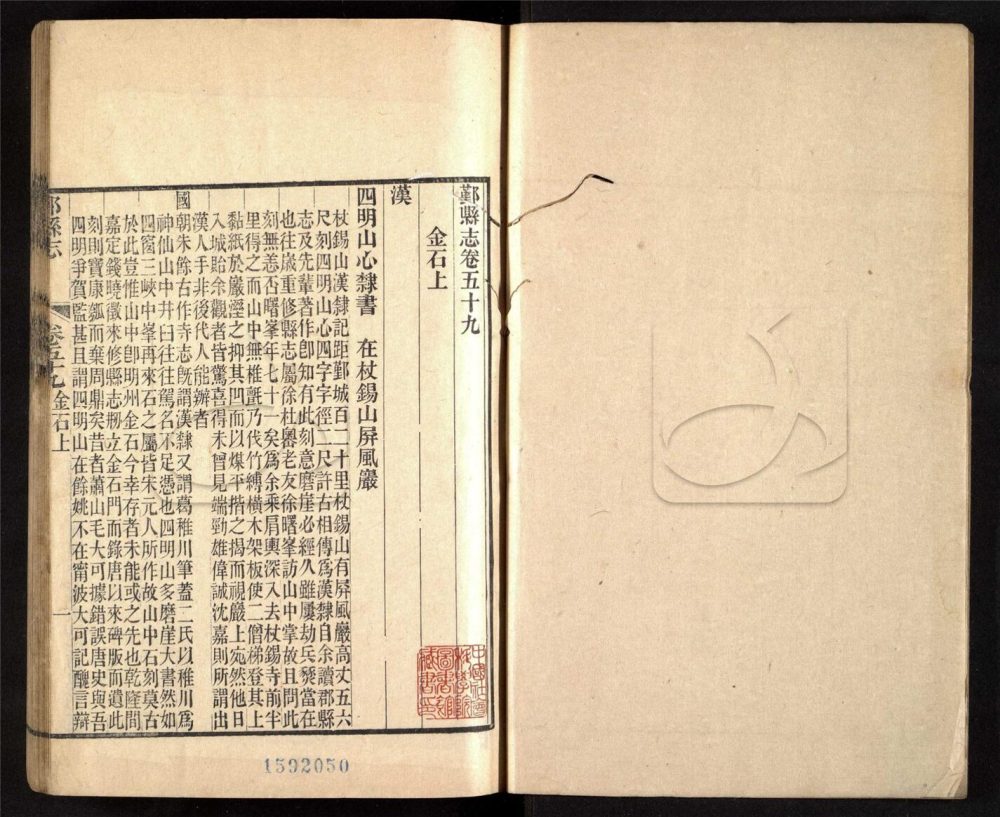 鄞縣志卷五十九
金石上
漢
四明山心隸書　在杖錫山屏風巖
杖錫山漢隸記距鄞城百二十里杖錫山有屏風巖高丈五六
尺刻四明山心四字字徑二尺許古相傳為漢隸自余讀郡縣
志及先輩著作卽知有此刻意磨崖必經久雖屢劫兵燹當在
也往歲重修縣志屬徐杜礐老友徐曙峯訪山中掌故且問此
刻無恙否曙峯年七十一矣為余乘肩輿深入去杖錫寺前半
里得之而山中無椎氈乃伐竹縛橫木架板使二僧梯登其上
黏紙於巖溼之抑其凹而以煤平揩之揭而視巖上宛然他日
入城貽余觀者皆驚喜得未曾見端勁雄偉誠沈嘉則所謂出
漢人手非後代人能辦者
國朝朱餘古作寺志旣謂漢隸又謂葛稚川筆蓋二氏以稚川為
神仙山中井臼往往駕名不足憑也四明山多磨崖大書然如
四窗三峽中峯再來石之屬皆宋元人所作故山中石刻莫古
於此豈惟山中卽明州金石今幸存者未能或之先也乾隆間
嘉定錢曉徵來修縣志剏立金石門而錄唐以來碑版而遺此
刻則寶康瓠而棄周鼎矣昔者蕭山毛大可據錯誤唐史與吾
四明爭賀監甚且謂四明山在餘姚不在甯波大可記醜言辯
縣志
卷五十九金石上
一
1592050